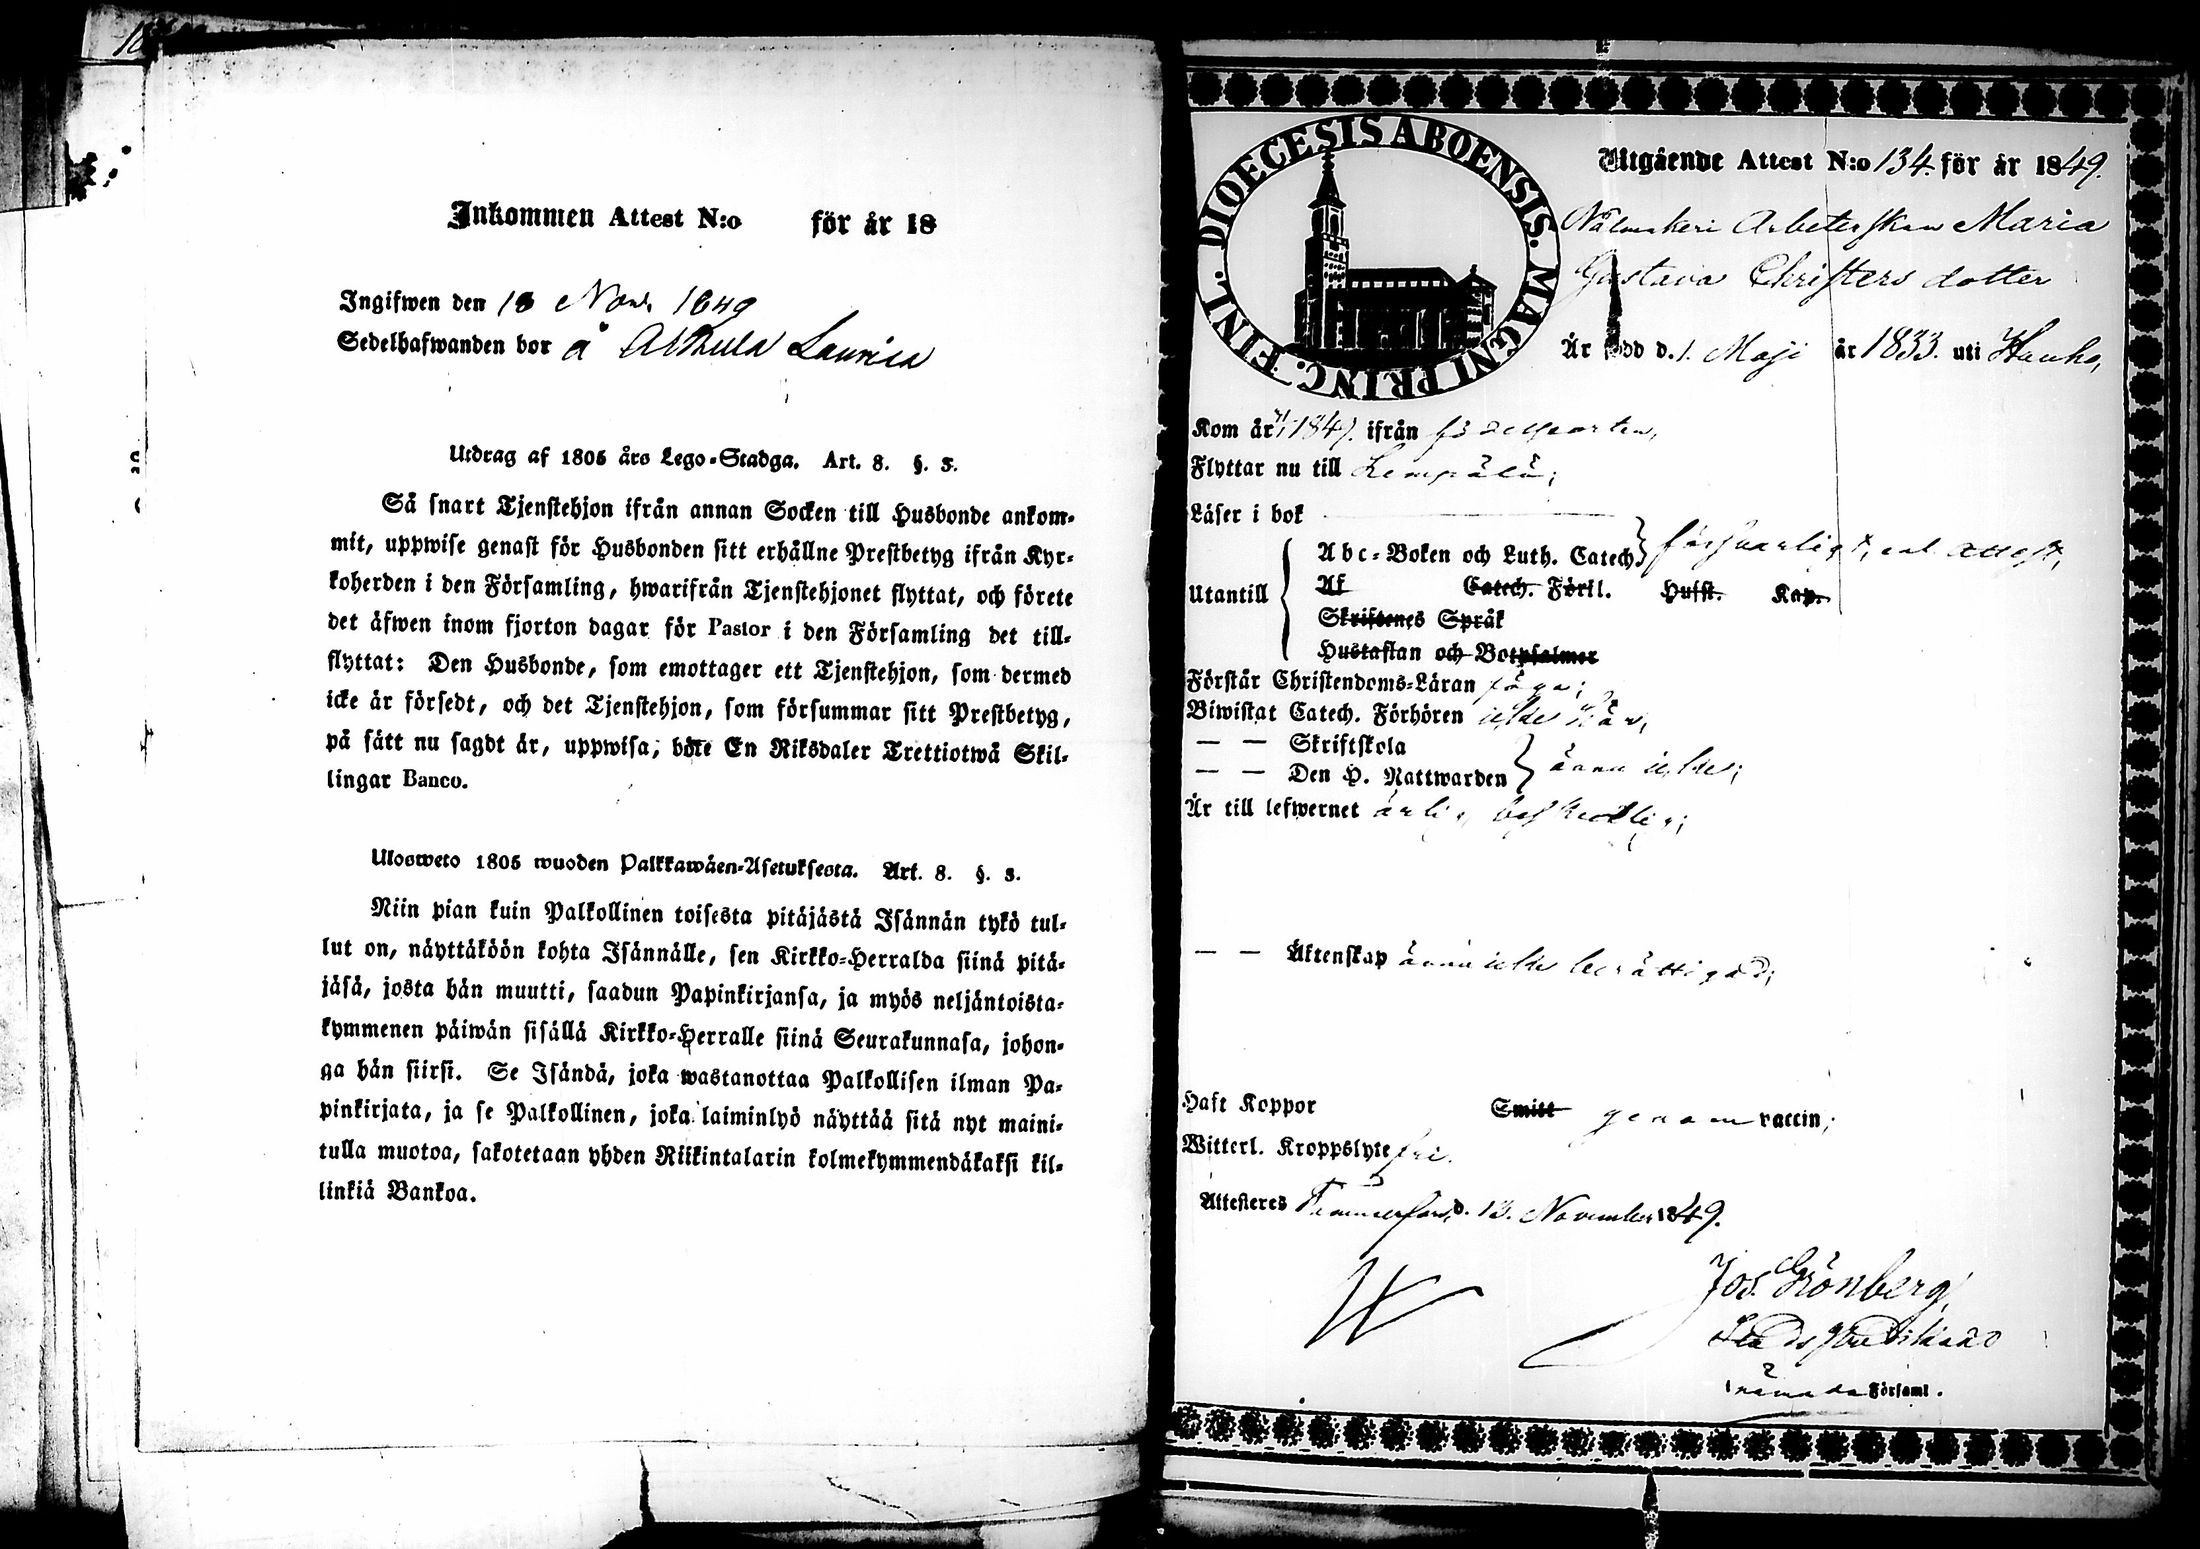 Inkommen Attest N:o för år 18
Ingifwen den 18 Nov. 1849
Sedelhafwanden bor å Laurila
Utdrag af 1805 års Lego-Stadga. Art. 8. §. 3.
Så snart Tjenstehjon ifrån annan Socken till Husbonde ankom-
mit, uppwise genast för Husbonden sitt erhållne Prestbetyg ifrån Kyr-
koherden i den Församling, hwarifrån Tjenstehjonet flyttat, och förete
det äfwen inom fjorton dagar för Pastor i den Församling det till-
flyttat: Den Husbonde, som emottager ett Tjenstehjon, som dermed
icke är försedt, och det Tjenstehjon, som försummar sitt Prestbetyg,
på sätt nu sagdt är, uppwisa; böte En Riksdaler Trettiotwå Skil-
lingar Banco.
Ulosweto 1805 wuoden Palkkawäen-Asetuksesta. Art. 8. §. 3.
Niin pian kuin Palkollinen toisesta pitäjästä Isännän tykö tul-
lut on, näyttäköön kohta Isännälle, sen Kirkko-Herralda siinä pitä-
jäsä, josta hän muutti, saadun Papinkirjansa, ja myös neljäntoista-
kymmenen päiwän sisällä Kirkko-Herralle siinä Seurakunnasa, johon-
ga hän siirsi. Se Isändä, joka wastanottaa Palkollisen ilman Pa-
pinkirjata, ja se Palkollinen, joka laiminlyö näyttää sitä nyt maini-
tulla muotoa, sakotetaan yhden Riikintalarin kolmekymmendäkaksi kil-
linkiä Bankoa.
DIOECESIS ABOENSIS. MAGNI PRINC. FINL.
Utgående Attest N:o 134. för år 1849.
Nålmakeri Arbeterskan Maria
Gustava Christersdotter
Är född d. 1. Maji år 1833. uti Hauho,
Kom år 1847. ifrån födelseorten,
Flyttar nu till Lempälä;
Läser i bok
Utantill
Abc-Boken och Luth. Catech. försvarligt, enl. attest,
Af Catech. Förkl. Hufst. Kap.
Skriftenes Språk
Hustaflan och Botpsalmer
Förstår Christendoms-Läran föga;
Biwistat Catech. Förhören icke här,
— — Skriftskola
— — Den H. Nattwarden ännu icke;
Är till lefwernet ärlig, beskedlig;
— — Äktenskap ännu icke berättigad;
Haft Koppor Smitt genom vaccin;
Witterl. Kroppslyte fri.
Attesteres Tammerfors, d. 13. November 1849.
Jos. Grönberg,
Stadspredikant
nämnda Församl.